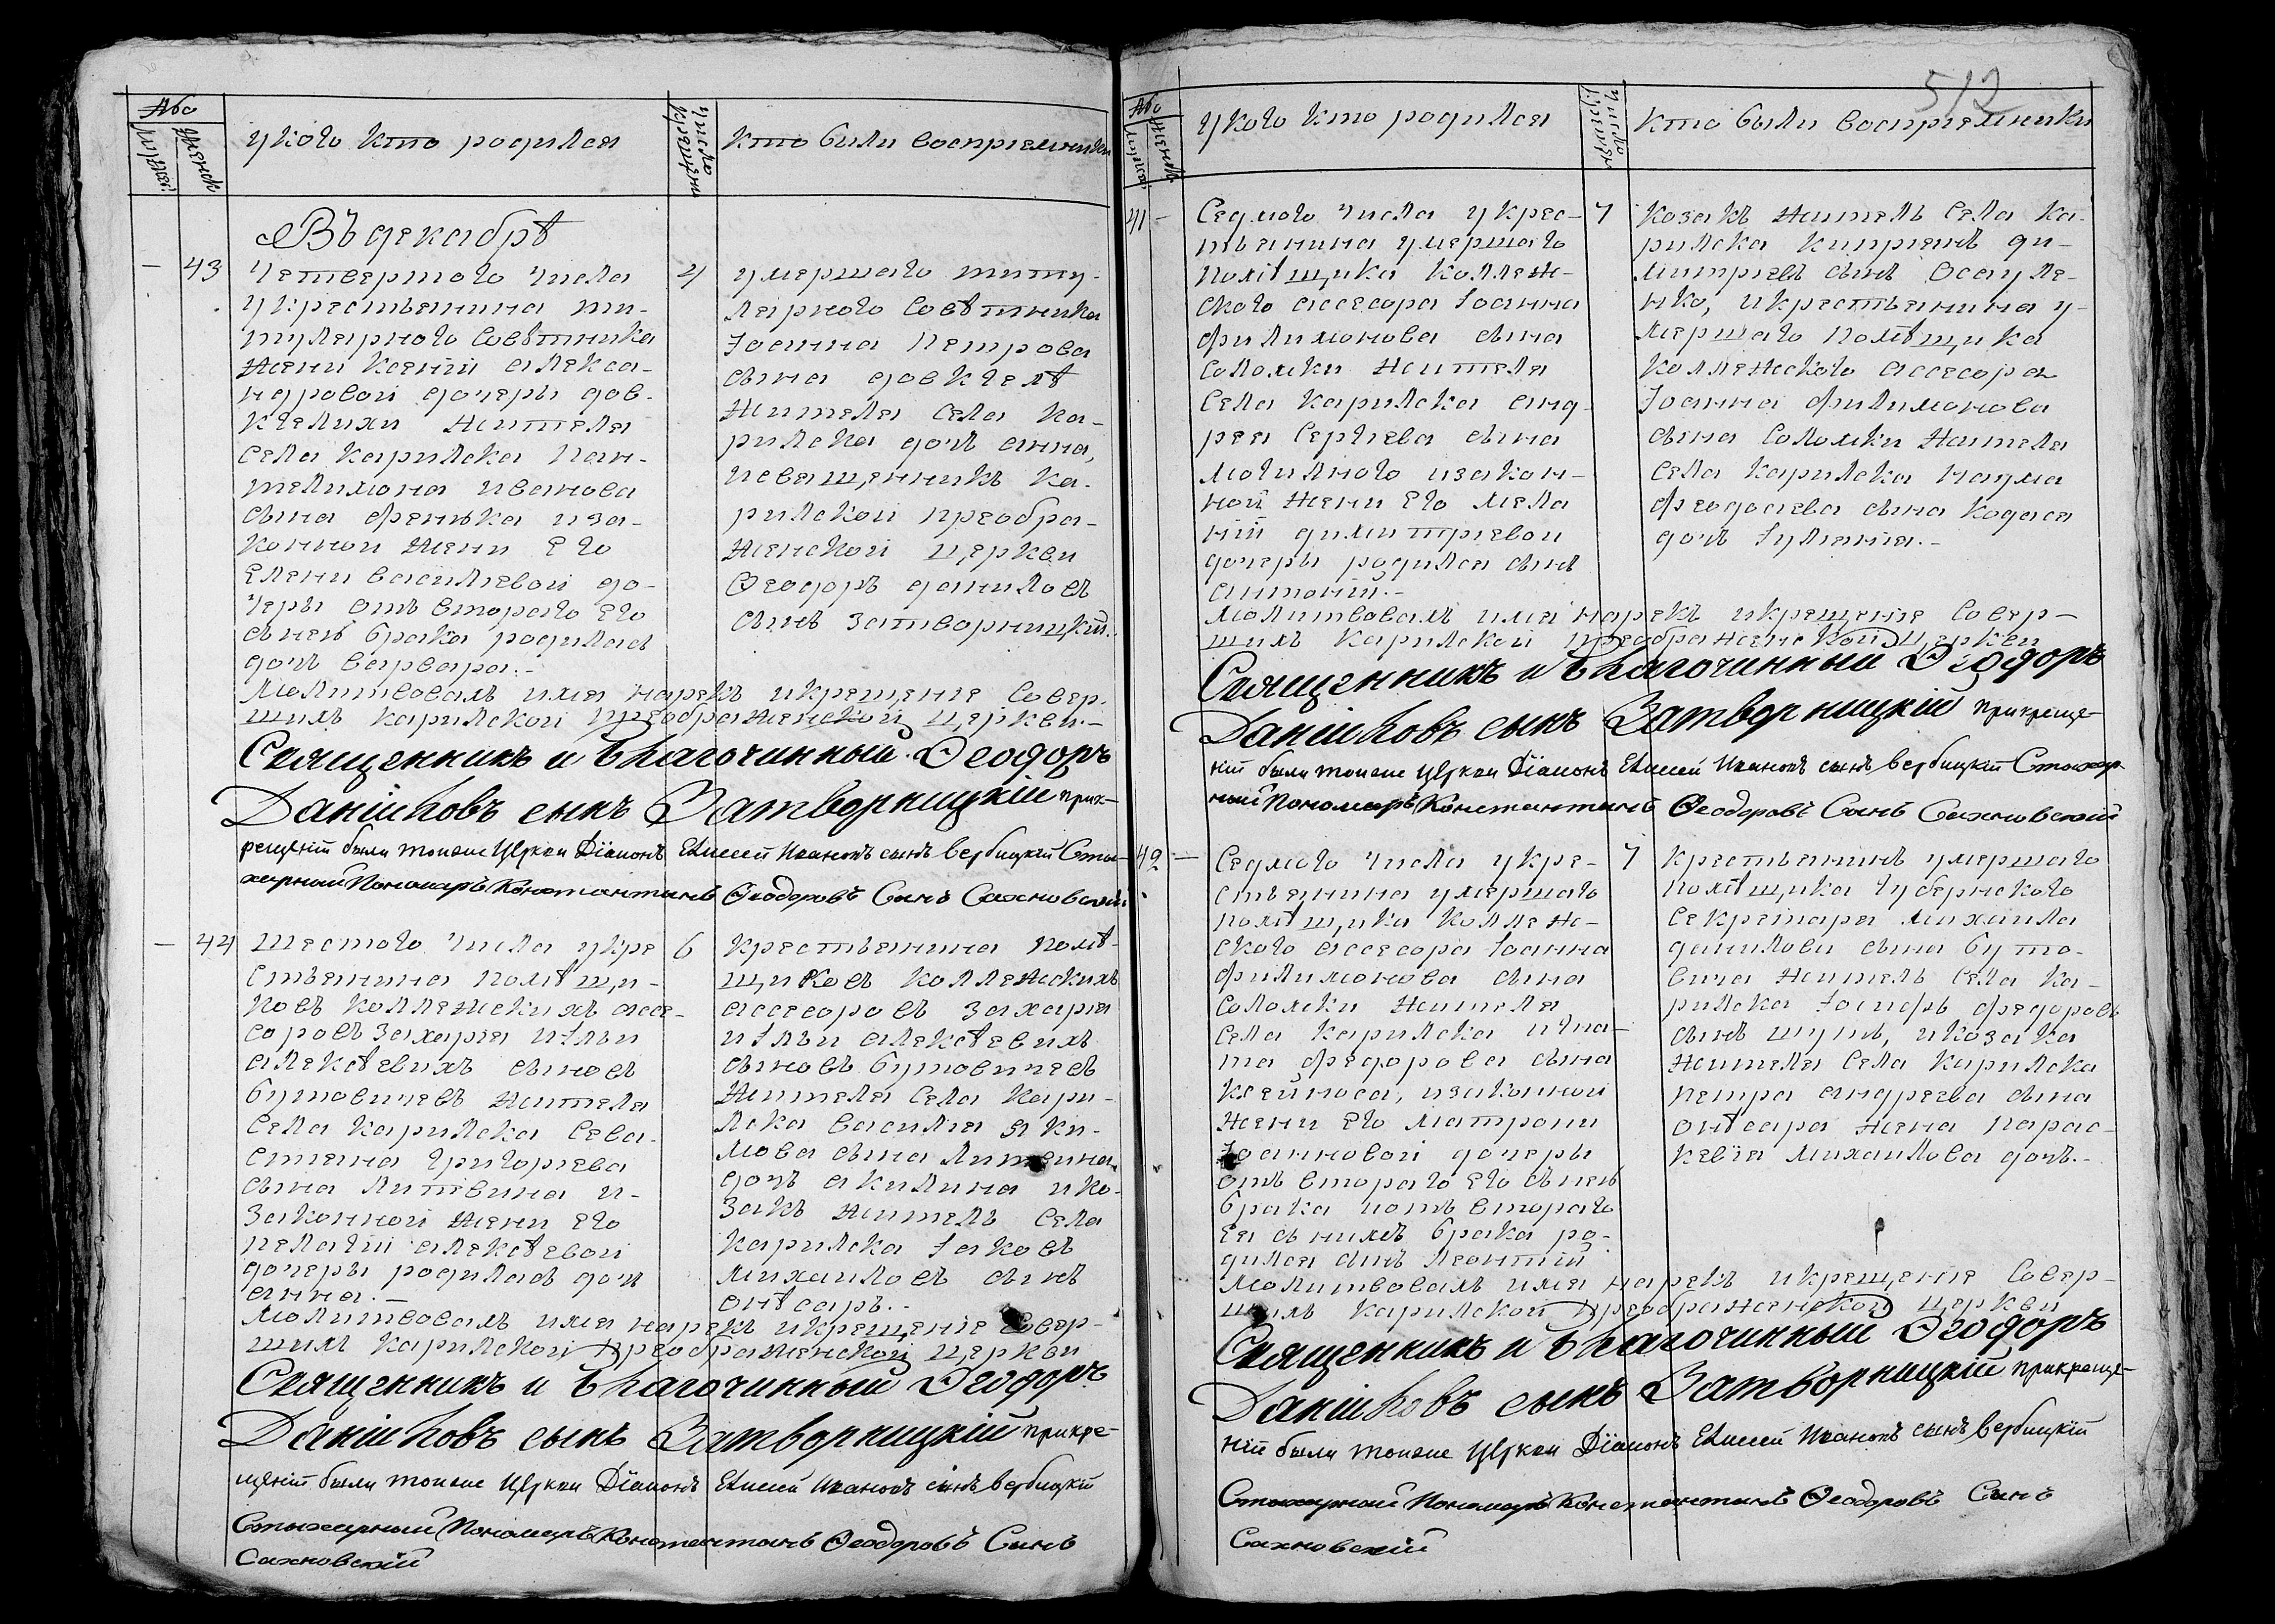 Або
Мужей
Женск
У кого кто родился
Число крещения
Кто были восприемники
Въ декабрѣ
— 43
Четвертого числа
у крестьянина ти-
тулярного совѣтника
жени Ксеніи алекса-
ндровой дочеры дов-
кгелихи жителя
села карилска пан-
телимона иванова
сына фенька и за-
конной жени его
Елени василіевой до-
черы отъ второго его
сънею брака родилась
дочь варвара.-
4
умершаго титу-
лярного совѣтника
Іоанна Петрова
сына довкгелѣ
жителя села ка-
рилска дочь анна,
и священникъ ка-
рилской преобра-
женской церкви
Ѳеодоръ даниловъ
сынъ затворницкій.
Молитвовалъ имя нарекъ и крещеніе совер-
шилъ карилской преображенской церкви.-
Священникъ и Благочинный Ѳеодоръ
Данііловъ сынъ Затворницкій при к-
рещеніи были тоияже церкви Діаконъ Елисей Ивановъ сынъ вербицкій Сты-
харный Пономаръ Константинъ Ѳеодоровъ Синъ Сахновскій
— 44
шестого числа у кре
стьянина помѣщи-
ковъ коллежскихъ ассе-
соровъ захарія и Ильи
алексѣевихъ сыновъ
бутовичевъ жителя
села карилска сева-
стіяна григоріева
сына литвина и
законной жени его
пелагіи алексѣевой
дочеры родилась дочь
анна.-
6
крестьянина помѣ-
щиковъ коллежскихъ
ассесоровъ захарія
и Ильи алексѣевихъ
сыновъ бутовичевъ
жителя села кари-
лска василія яки-
мова сына литвина
дочь акилина и ко-
закъ житель села
карилска Іаковъ
михаиловъ сынъ
онѣсаръ.-
Молитвовалъ имя нарекъ и крещеніе совер-
шилъ карилской преображенской церкви
Священникъ и Благочинный Ѳеодоръ
Данііловъ сынъ Затворницкій при кре-
щеніи были тоияже церкви Діаконъ Елисей Ивановъ сынъ вербицкій
Стыхарный Пономаръ Константинъ Ѳеодоровъ Синъ
Сахновскій
512
Або
Мужей
Женск
У кого кто родился
Число крещения
Кто были восприемники
41 —
Седмого числа у крес-
тьянина умершаго
помѣщика коллеж-
ского ассесора Іоанна
филимонова сына
соломки жителя
села карилска анд-
рея сергіева сына
могилного и закон-
ной жени его мела
ніи димитріевой
дочеры родился сынъ
антоній.-
7
козакъ житель села ка-
рилска кипріянъ ди-
митріевъ сынъ осауле-
нко, и крестьянина у-
мершаго помѣщика
коллежского ассесора
Іоанна филимонова
сына соломки жителя
села карилска наума
феодосіева сына кодася
дочь Іуліанія.-
Молитвовалъ имя нарекъ и крещеніе совер-
шилъ карилской преображенской церкви
Священникъ и Благочинный Ѳеодоръ
Данііловъ сынъ Затворницкій при креще-
ніи были тоияже церкви Діаконъ Елисей Ивановъ сынъ вербицкій Стыхар-
ный Пономаръ Константинъ Ѳеодоровъ Синъ Сахновскій
42 —
Седмого числа у кре-
стьянина умершаго
помѣщика коллеж-
ского ассесора Іоанна
филимонова сына
соломки жителя
села карилска игна-
та федорова сына
клейноса, и законной
жени его матрони
Іоанновой дочеры
отъ второго его сънею
брака и отъ второго
ея сънимъ брака ро-
дился синъ леонтій
7
крестьянинъ умершаго
помѣщика губернского
секретаря михаила
данилова сына буто-
вича житель села ка-
рилска Іосифъ федоровъ
сынъ шупѣ, и козака
жителя села карилска
петра андреева сына
онѣсара жена парас-
кевія михаилова дочь.-
Молитвовалъ имя нарекъ и крещеніе совер-
шилъ карилской преображенской церкви
Священникъ и Благочинный Ѳеодоръ
Данііловъ сынъ Затворницкій при креще-
ніи были тоияже церкви Діаконъ Елисей Ивановъ сынъ вербицкій
Стыхарный Пономаръ Константинъ Ѳеодоровъ Синъ
Сахновскій